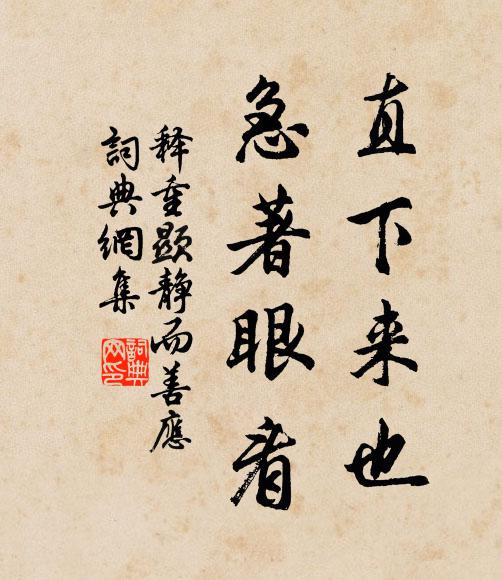 直下来也
急著眼看
释重显静而善應
詞典網集
詞典网印